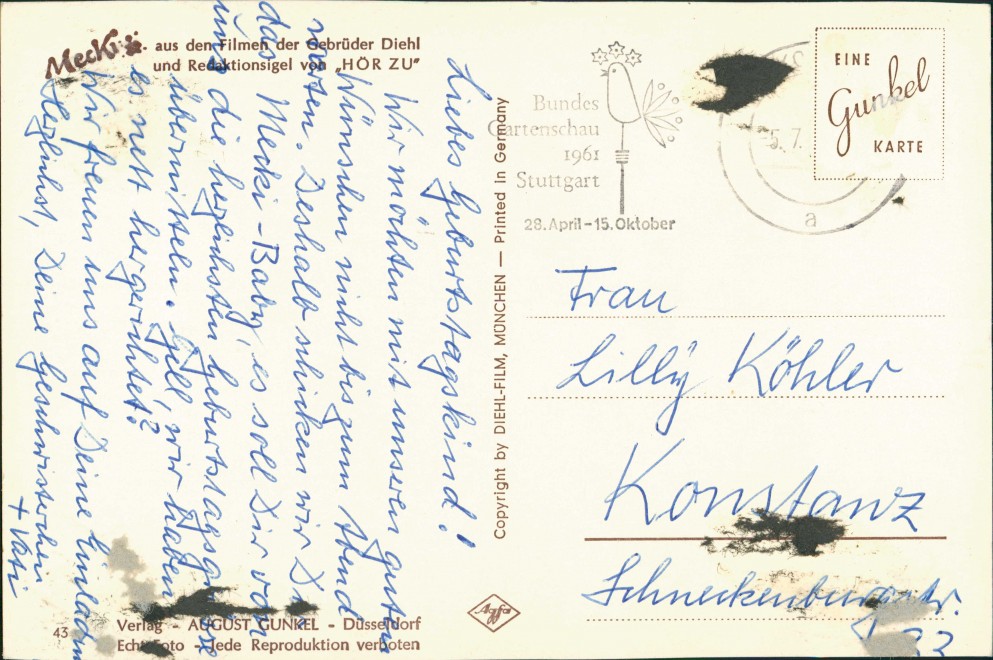 Mecki aus den Filmen der Gebrüder Diehl
und Redaktionsigel von „HÖR ZU"
Liebes Geburtstagskind!
Wir möchten mit unseren guten
Wünschen nicht bis zum Abend
warten. Deshalb schicken wir Dir
das Mecki-Baby, es soll Dir von
uns die herzlichsten Geburtstagsgrüße
übermitteln. Gell, wir haben
es nett hergerichtet?
Wir freuen uns auf Deine Einladung
Herzlichst, Deine Geschwisterchen
+ Vati
43
Verlag - AUGUST GUNKEL - Düsseldorf
Echt Foto - Jede Reproduktion verboten
Copyright by DIEHL-FILM, MÜNCHEN — Printed in Germany
Agfa
Bundes
Gartenschau
1961
Stuttgart
28. April - 15. Oktober
5. 7.
a
EINE
Gunkel
KARTE
Frau
Lilly Köhler
Konstanz
Schneckenburgstr.